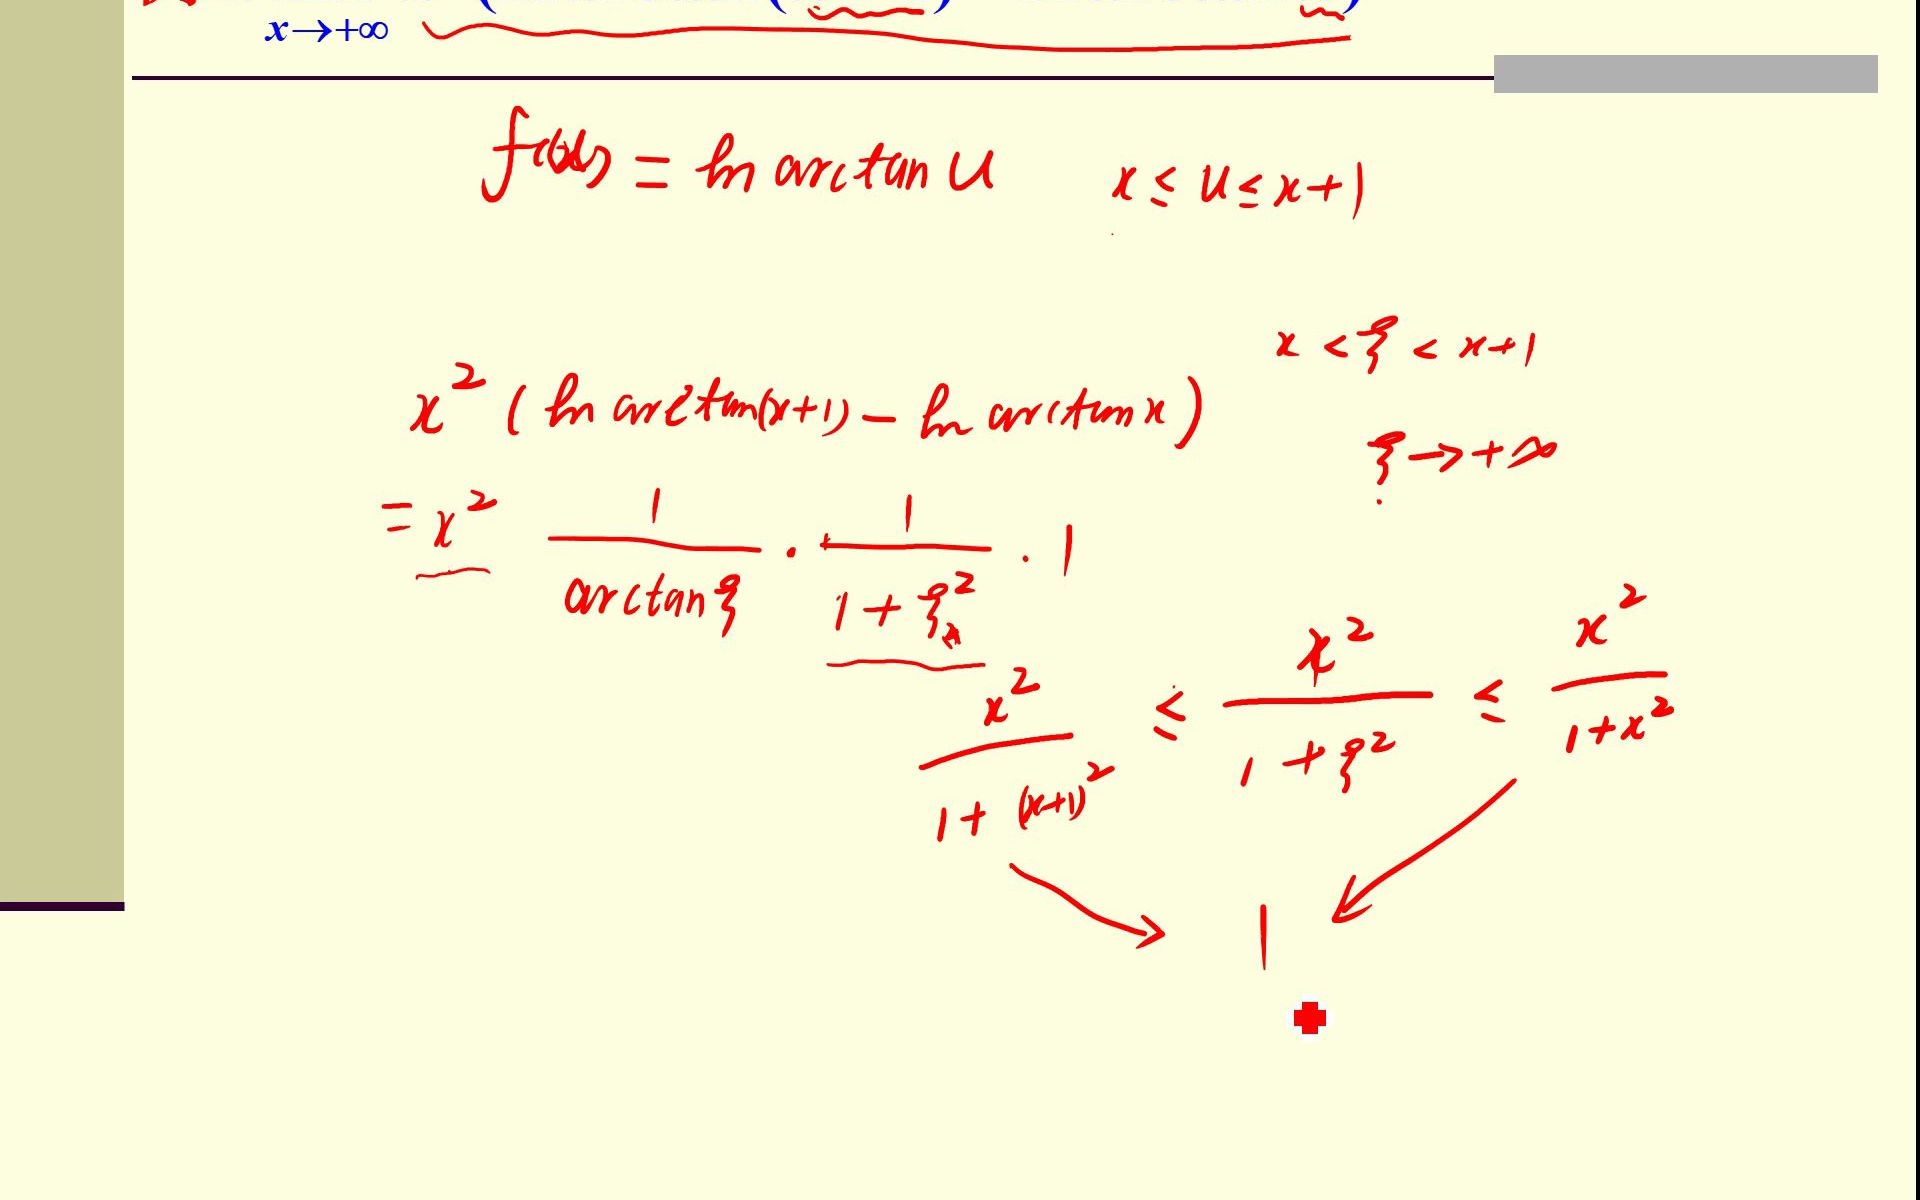 x→+∞
f(u) = ln arctan u    x ≤ u ≤ x+1
x < ξ < x+1
x² ( ln arctan(x+1) − ln arctan x )
ξ → +∞
= x² 1/(arctan ξ) · 1/(1+ξ²) · 1
x²/(1+(x+1)²) ≤ x²/(1+ξ²) ≤ x²/(1+x²)
1